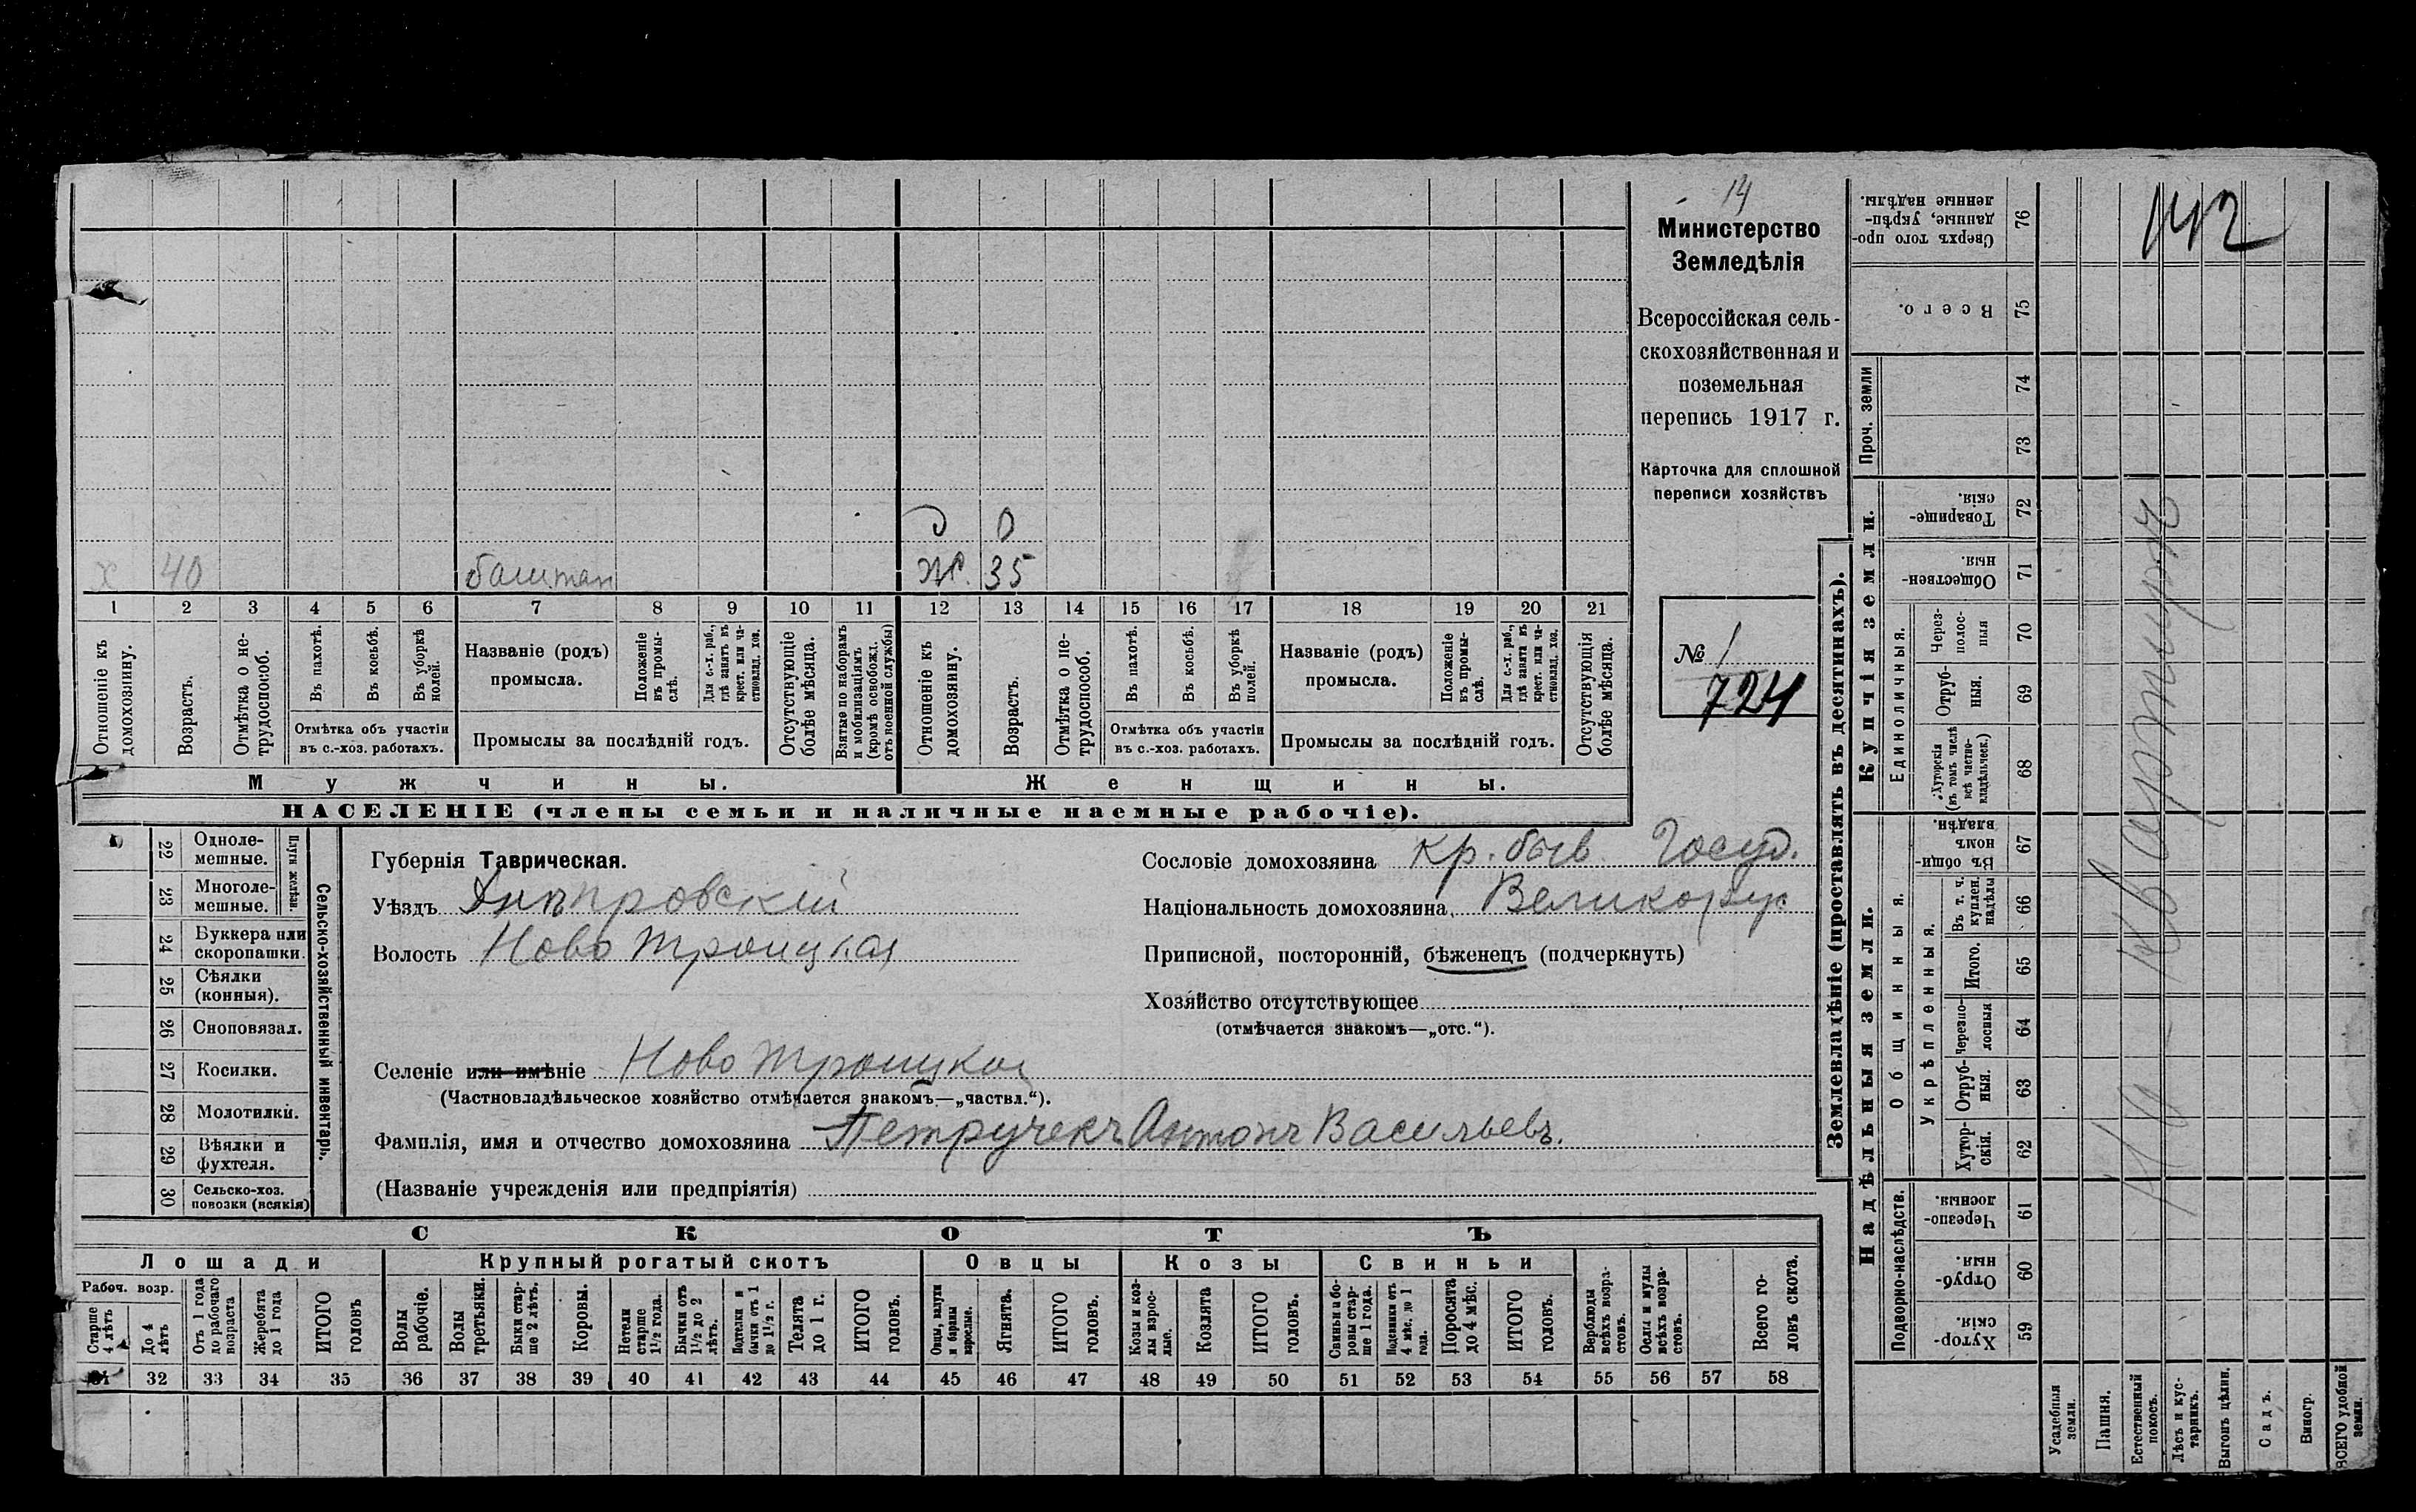 14
Министерство
Земледѣлія
Всероссійская сель-
скохозяйственная и
поземельная
перепись 1917 г.
Карточка для сплошной
переписи хозяйствъ
№ 1
724
142
д 0
х 40 баштан Ж. 35
1 2 3 4 5 6 7 8 9 10 11 12 13 14 15 16 17 18 19 20 21
Отношеніе къ домохозяину.
Возрастъ.
Отмѣтка о не-трудоспособ.
Въ пахотѣ.
Въ косьбѣ.
Въ уборкѣ полей.
Отмѣтка объ участіи въ с.-хоз. работахъ.
Названіе (родъ) промысла.
Положеніе въ промы-слѣ.
Для с.-х. раб., гдѣ занятъ въ крест. или ча-стновлад. хоз.
Промыслы за послѣдній годъ.
Отсутствующіе болѣе мѣсяца.
Взятые по наборамъ и мобилизаціямъ (кромѣ освобожд. отъ военной службы)
Отношеніе къ домохозяину.
Возрастъ.
Отмѣтка о не-трудоспособ.
Въ пахотѣ.
Въ косьбѣ.
Въ уборкѣ полей.
Отмѣтка объ участіи въ с.-хоз. работахъ.
Названіе (родъ) промысла.
Положеніе въ промы-слѣ.
Для с.-х. раб., гдѣ занята въ крест. или ча-стновлад. хоз.
Промыслы за послѣдній годъ.
Отсутствующія болѣе мѣсяца.
Мужчины. Женщины.
НАСЕЛЕНІЕ (члены семьи и наличные наемные рабочіе).
Сельско-хозяйственный инвентарь.
Плуги желѣзн.
22 Одноле-мешные.
23 Многоле-мешные.
24 Буккера или скоропашки.
25 Сѣялки (конныя).
26 Сноповязал.
27 Косилки.
28 Молотилки.
29 Вѣялки и фухтеля.
30 Сельско-хоз. повозки (всякія)
Губернія Таврическая.
Уѣздъ Днѣпровскій
Волость Ново Троицкая
Селеніе или имѣніе Ново Троицкое
(Частновладѣльческое хозяйство отмѣчается знакомъ—„частвл.“).
Фамилія, имя и отчество домохозяина Петручекъ Антонъ Васильевъ.
(Названіе учрежденія или предпріятія)
Сословіе домохозяина кр. быв. Госуд.
Національность домохозяина Великорус
Приписной, посторонній, бѣженецъ (подчеркнуть)
Хозяйство отсутствующее
(отмѣчается знакомъ—„отс.“).
СКОТЪ
Лошади Крупный рогатый скотъ Овцы Козы Свиньи
Рабоч. возр.
Старше 4 лѣтъ
До 4 лѣтъ
Отъ 1 года до рабочаго возраста
Жеребята до 1 года
ИТОГО головъ
Волы рабочіе.
Волы третьяки.
Быки стар-ше 2 лѣтъ.
Коровы.
Нетели старше 1½ года.
Бычки отъ 1½ до 2 лѣтъ.
Подтелки и бычки отъ 1 до 1½ г.
Телята до 1 г.
ИТОГО головъ.
Овцы, валухи и бараны взрослые.
Ягнята.
ИТОГО головъ.
Козы и коз-лы взрос-лые.
Козлята
ИТОГО головъ.
Свиньи и бо-ровы стар-ше 1 года.
Подсвинки отъ 4 мѣс. до 1 года.
Поросята до 4 мѣс.
ИТОГО головъ.
Верблюды всѣхъ возра-стовъ.
Ослы и мулы всѣхъ возра-стовъ.
Всего го-ловъ скота.
31 32 33 34 35 36 37 38 39 40 41 42 43 44 45 46 47 48 49 50 51 52 53 54 55 56 57 58
Землевладѣніе (проставлять въ десятинахъ).
Надѣльныя земли. Купчія земли. Проч. земли
Подворно-наслѣдств.
Общинныя.
Укрѣпленныя.
Единоличныя.
Сверхъ того про-данные, укрѣп-ленные надѣлы. 76
Всего. 75
74
73
Товарище-скія. 72
Обществен-ныя 71
Через-полос-ныя 70
Отруб-ныя. 69
Хуторскія (въ томъ числѣ всѣ частно-владѣльческ.) 68
Въ общи-номъ владѣн. 67
Въ т. ч. куплен. надѣлы 66
Итого. 65
Черезпо-лосныя 64
Отруб-ныя. 63
Хутор-скія. 62
Черезпо-лосныя. 61
Отруб-ныя 60
Хутор-скія. 59
Усадебныя земли.
Пашня.
Естественный покосъ.
Лѣсъ и кус-тарникъ.
Выгонъ цѣлин.
Садъ.
Виногр.
ВСЕГО удобной земли.